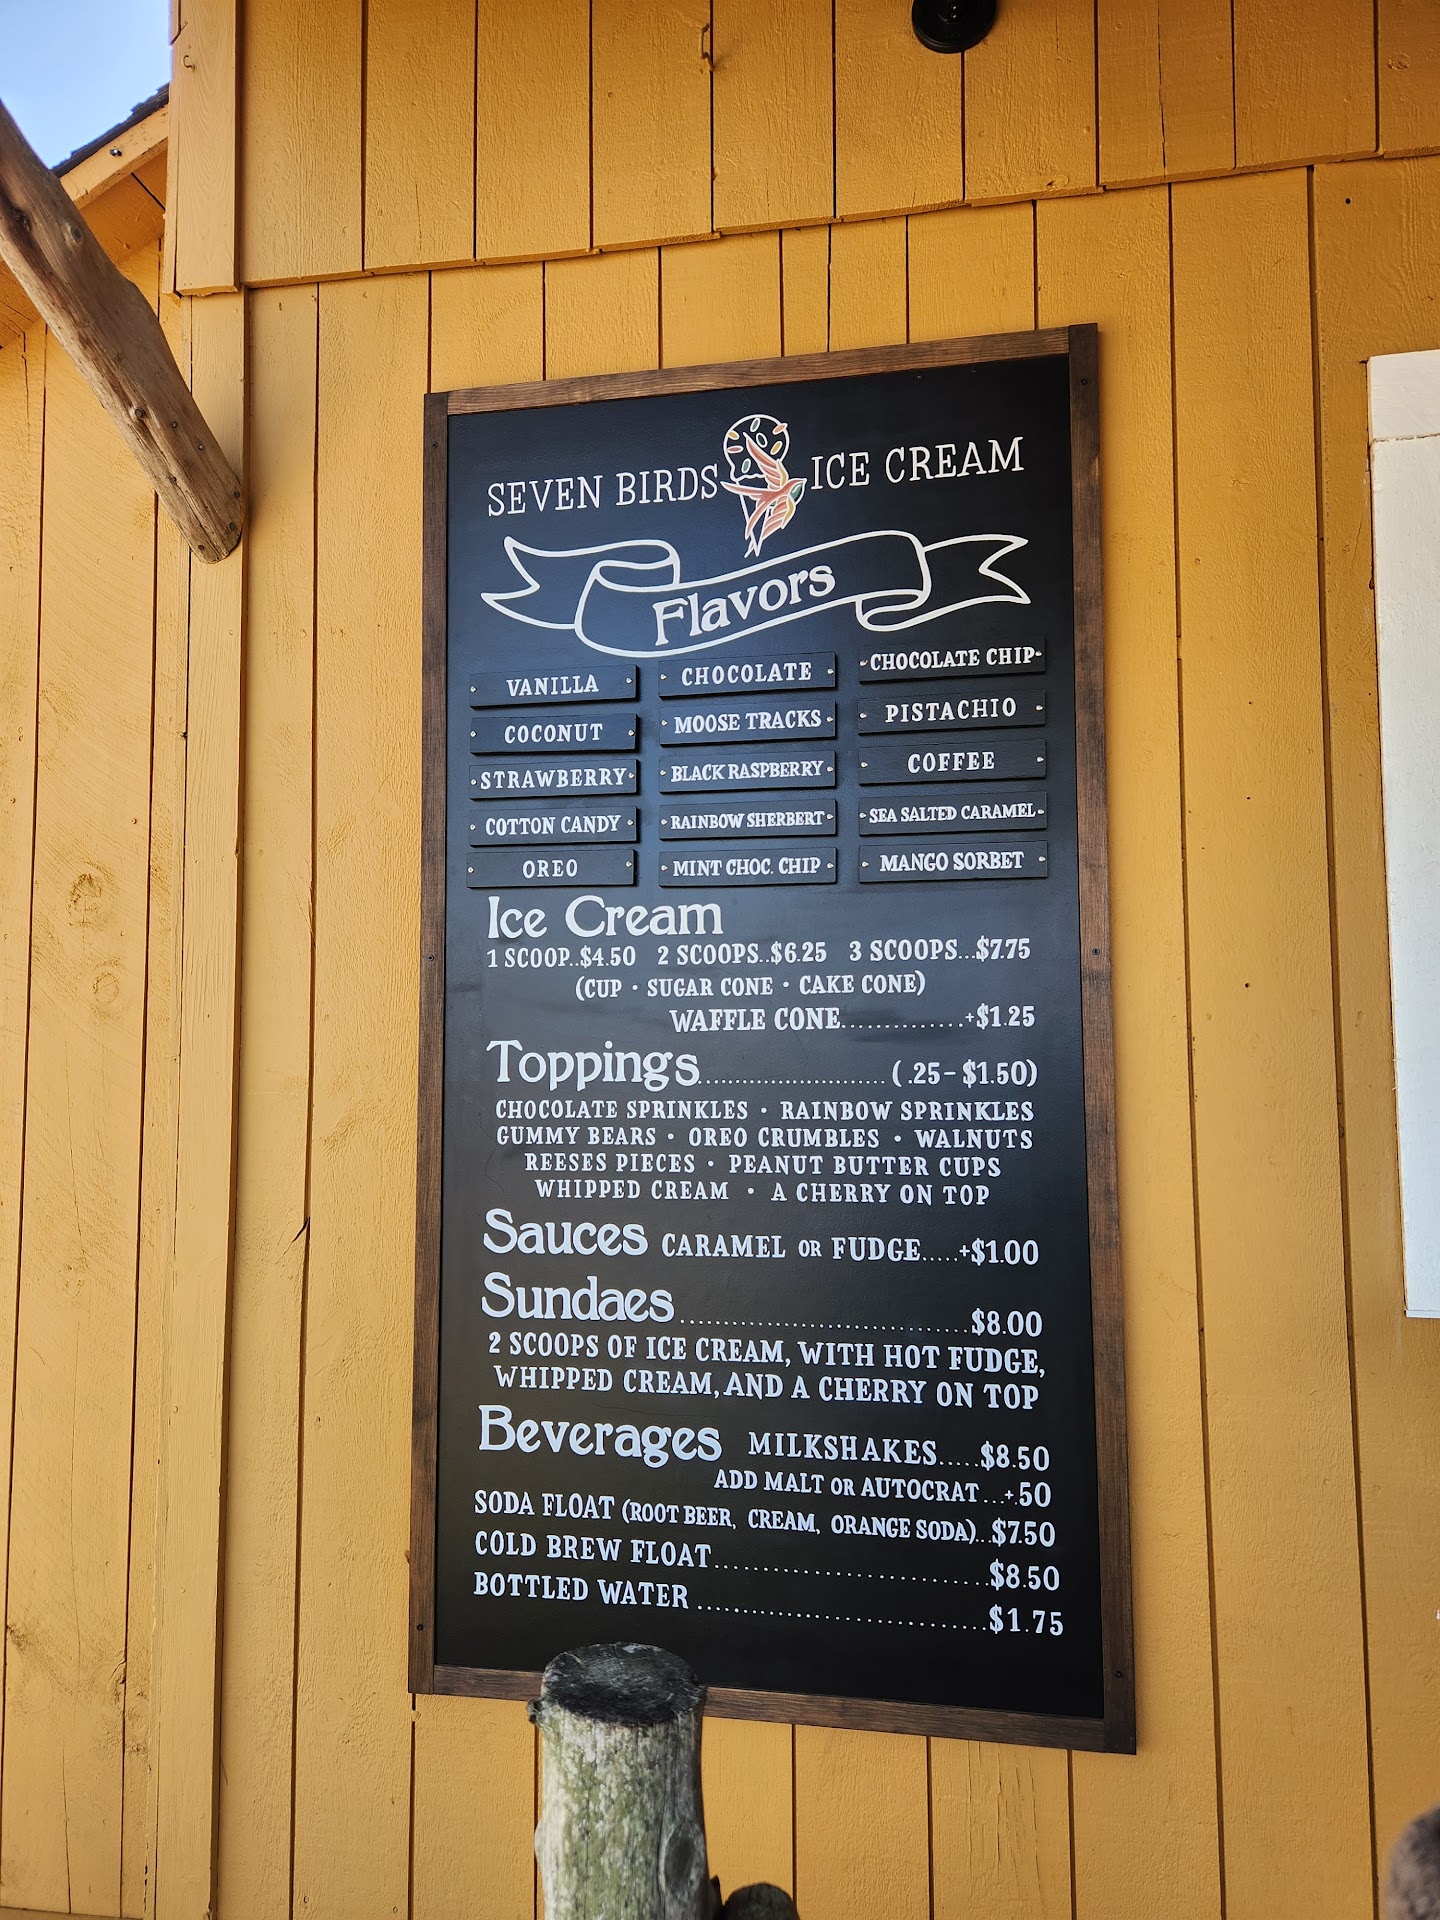 SEVEN BIRDS ICE CREAM
Flavors
VANILLA CHOCOLATE CHOCOLATE CHIP
COCONUT MOOSE TRACKS PISTACHIO
STRAWBERRY BLACK RASPBERRY COFFEE
COTTON CANDY RAINBOW SHERBERT SEA SALTED CARAMEL
OREO MINT CHOC. CHIP MANGO SORBET
Ice Cream
1 SCOOP..$4.50 2 SCOOPS..$6.25 3 SCOOPS...$7.75
(CUP · SUGAR CONE · CAKE CONE)
WAFFLE CONE..............+$1.25
Toppings........................(.25-$1.50)
CHOCOLATE SPRINKLES · RAINBOW SPRINKLES
GUMMY BEARS · OREO CRUMBLES · WALNUTS
REESES PIECES · PEANUT BUTTER CUPS
WHIPPED CREAM · A CHERRY ON TOP
Sauces CARAMEL OR FUDGE.....+$1.00
Sundaes................................$8.00
2 SCOOPS OF ICE CREAM, WITH HOT FUDGE,
WHIPPED CREAM, AND A CHERRY ON TOP
Beverages MILKSHAKES.....$8.50
ADD MALT OR AUTOCRAT...+.50
SODA FLOAT (ROOT BEER, CREAM, ORANGE SODA)...$7.50
COLD BREW FLOAT............................$8.50
BOTTLED WATER..............................$1.75